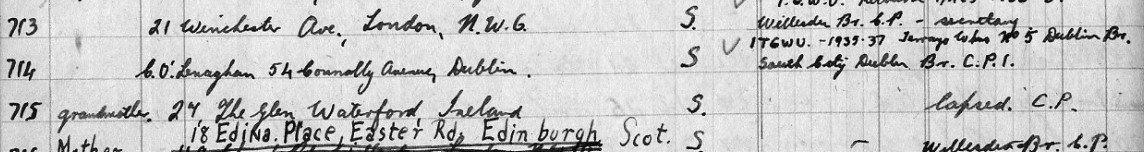 713 21 Winchester Ave., London, N.W.6. S. Willesden Br. C.P. - secretary
ITGWU. - 1935-37 No 5 Dublin Br.
714 C. O'Lenaghan 54 Connolly Avenue, Dublin. S South City Dublin Br. C.P.I.
715 grandmother. 27, The Glen Waterford, Ireland S. lapsed. C.P.
18 Edina. Place, Easter Rd, Edinburgh Scot.
Mother S - Willesden Br. C.P.